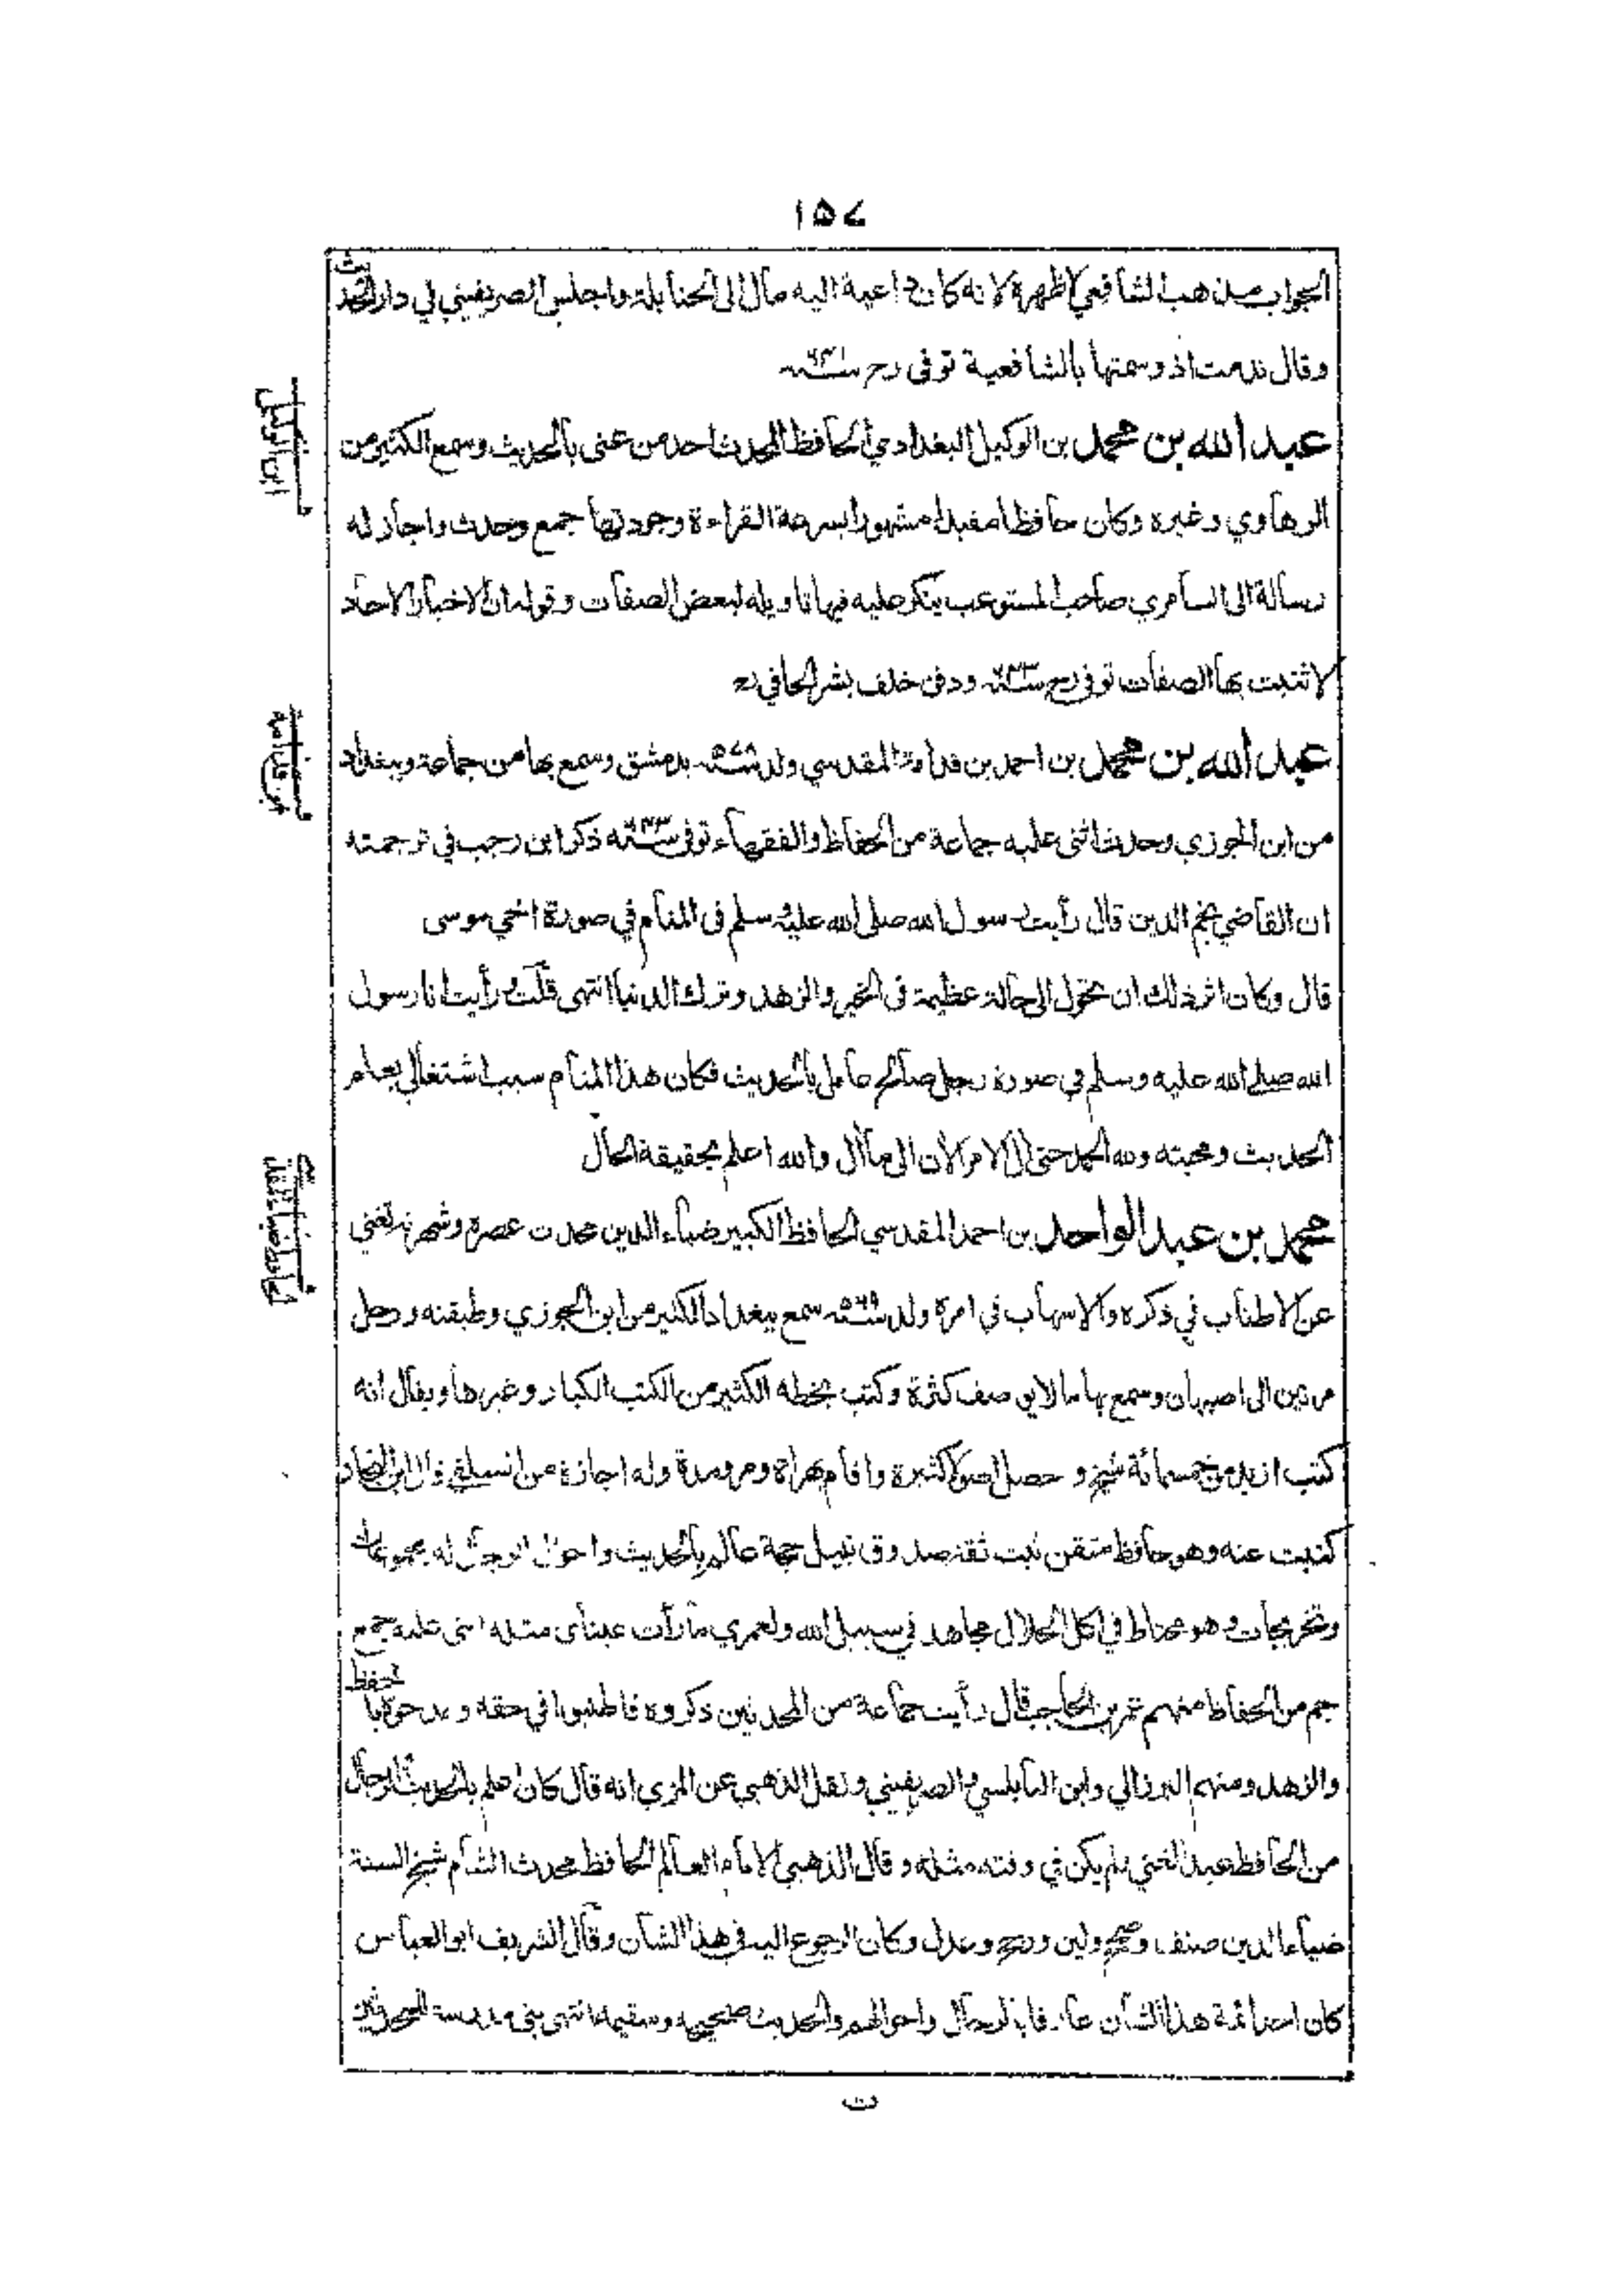 ١٥٧
الجواب مذهب الشافعي لاظهرة لانه كان داعية اليه مال الى الحنابلة واجلس الصريفيني في دار الحديث
وقال ندمت اذ وسمتها بالشافعية توفى رح سنة
ابن الوكيل
عبد الله بن محمد بن الوكيل البغدادي الحافظ المحدث احد من عنى بالحديث وسمع الكثير من
الرهاوي وغيره وكان حافظا مفيدا مشهورا بسرعة القراءة وجودتها جمع وحدث واجاز له
رسالة الى السامري صاحب المستوعب ينكر عليه فيها تاويله لبعض الصفات وقوله ان الاخبار الاحاد
لا تثبت بها الصفات توفى رح سنة ٦٣٣ ودفن خلف بشر الحافي رح
ابن قدامة
عبد الله بن محمد بن احمد بن قدامة المقدسي ولد سنة ٥٧٨ بدمشق وسمع بها من جماعة وببغداد
من ابن الجوزي وحدث اثنى عليه جماعة من الحفاظ والفقهاء توفى سنة ٦٤٣ ذكر ابن رجب في ترجمته
ان القاضي نجم الدين قال رأيت رسول الله صلى الله عليه وسلم في المنام في صورة اخي موسى
قال وكان اثر ذلك ان تحول الى حالة عظيمة في الخير والزهد وترك الدنيا انتهى قلت ورأيت انا رسول
الله صلى الله عليه وسلم في صورة رجل صالح عامل بالحديث فكان هذا المنام سبب اشتغالي بعلم
الحديث ومحبته ولله الحمد حتى آل الامر الآن الى ما آل والله اعلم بحقيقة الحال
الحافظ ضياء المقدسي
محمد بن عبد الواحد بن احمد المقدسي الحافظ الكبير ضياء الدين محدث عصره وشهرته تغني
عن الاطناب في ذكره والاسهاب في امره ولد سنة ٥٦٩ سمع ببغداد الكثير من ابن الجوزي وطبقته ورحل
مرتين الى اصبهان وسمع بها ما لا يوصف كثرة وكتب بخطه الكثير من الكتب الكبار وغيرها ويقال انه
كتب ازيد من خمسمائة شيخ وحصل اصولا كثيرة واقام بهراة ومرو مدة وله اجازة من السلفي قال ابن النجار
كتبت عنه وهو حافظ متقن ثبت ثقة صدوق نبيل حجة عالم بالحديث واحوال الرجال له مجموعات
وتخريجات وهو محتاط في اكل الحلال مجاهد في سبيل الله ولعمري ما رأت عيناى مثله اثنى عليه جمع
جم من الحفاظ منهم عمر بن الحاجب قال رأيت جماعة من المحدثين ذكروه فاطنبوا في حقه ومدحوه بالحفظ
والزهد ومنهم البرزالي وابن النابلسي والصريفيني ونقل الذهبي عن المزي انه قال كان اعلم بالحديث والرجال
من الحافظ عبد الغني ولم يكن في وقته مثله وقال الذهبي الامام العالم الحافظ محدث الشام شيخ السنة
ضياء الدين صنف وصحح ولين وجرح وعدل وكان المرجوع اليه في هذا الشان وقال الشريف ابو العباس
كان احد ائمة هذا الشان عارفا بالرجال واحوالهم والحديث صحيحه وسقيمه انتهى بنى مدرسة للمحدثين
ت